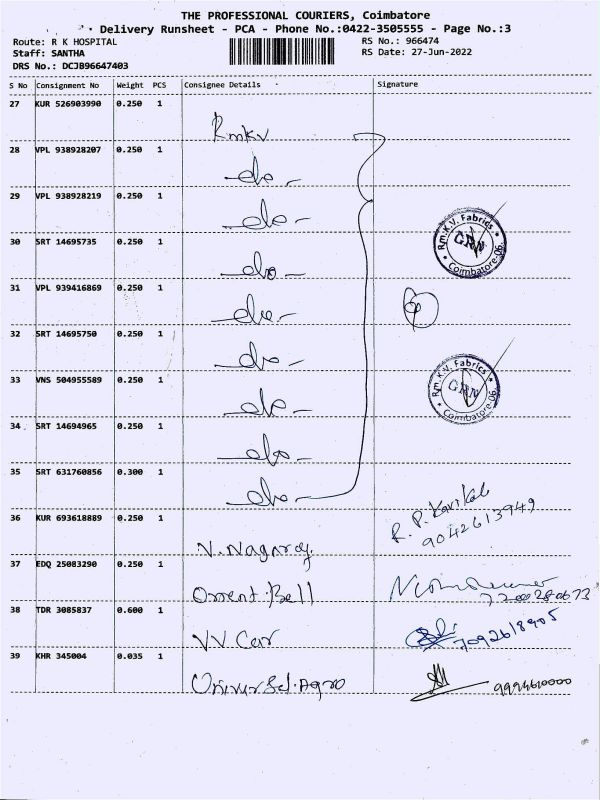 THE PROFESSIONAL COURIERS, Coimbatore
Delivery Runsheet - PCA - Phone No.:0422-3505555 - Page No.:3
Route: R K HOSPITAL RS No.: 966474
Staff: SANTHA RS Date: 27-Jun-2022
DRS No.: DCJB96647403
S No Consignment No Weight PCS Consignee Details Signature
27 KUR 526903990 0.250 1 Rmkv
28 VPL 938928207 0.250 1 do -
29 VPL 938928219 0.250 1 do -
Rm.K.V. Fabrics
GRN
Coimbatore-06.
30 SRT 14695735 0.250 1 do -
31 VPL 939416869 0.250 1 do -
32 SRT 14695750 0.250 1 do -
Rm.K.V. Fabrics
GRN
Coimbatore-06
33 VNS 504955589 0.250 1 do -
34 SRT 14694965 0.250 1 do -
35 SRT 631760856 0.300 1 do -
36 KUR 693618889 0.250 1 N. Nagaraj. R. P. Karikal
9042613949
37 EDQ 25083290 0.250 1 Orient Bell
38 TDR 3085837 0.600 1 VV Car 7092618905
39 KHR 345004 0.035 1 Agro